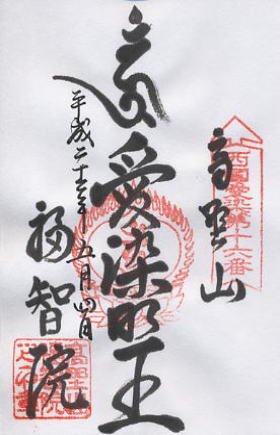 高野山
西国愛染第十六番
愛染明王
平成二十三年五月四日
福智院